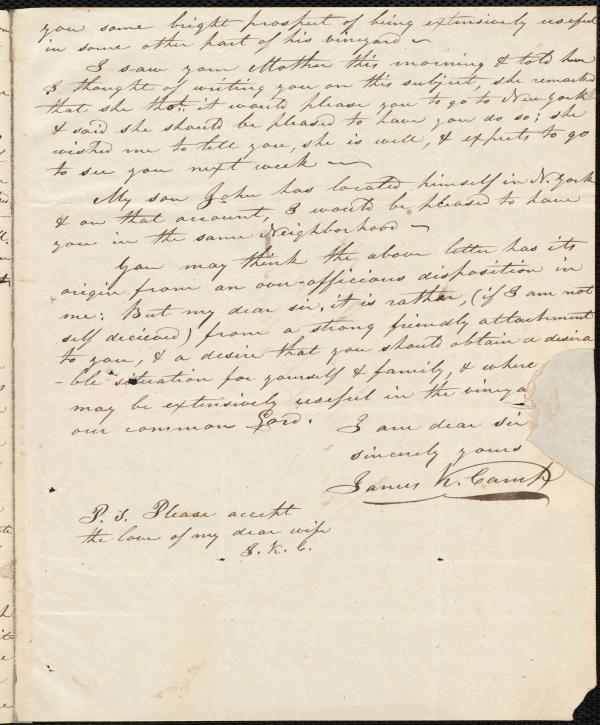 you some bright prospect of being extensively useful
in some other part of his vineyard ~
I saw your Mother this morning & told her
I thought of writing you on this subject, she remarked
that she thot. it would please you to go to New York
& said she should be pleased to have you do so; she
wished me to tell you, she is well, & expects to go
to see you next week ~
My son John has located himself in N. York
& on that account, I would be pleased to have
you in the same Neighborhood ~
You may think the above letter has its
origin from an over-officious disposition in
me: But my dear sir, it is rather, (if I am not
self deceived) from a strong friendly attachment
to you, & a desire that you should obtain a desira
-ble situation for yourself & family, & where
may be extensively useful in the vineya
our common Lord.
I am dear sir
sincerely yours
James K. Camp
P. S. Please accept
the love of my dear wife
J. K. C.